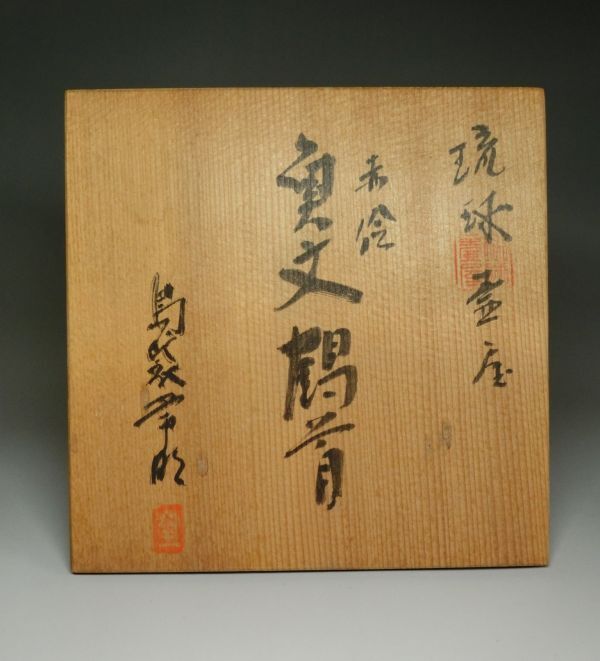 琉球 壺屋
赤絵
魚文 鶴首
島袋常明